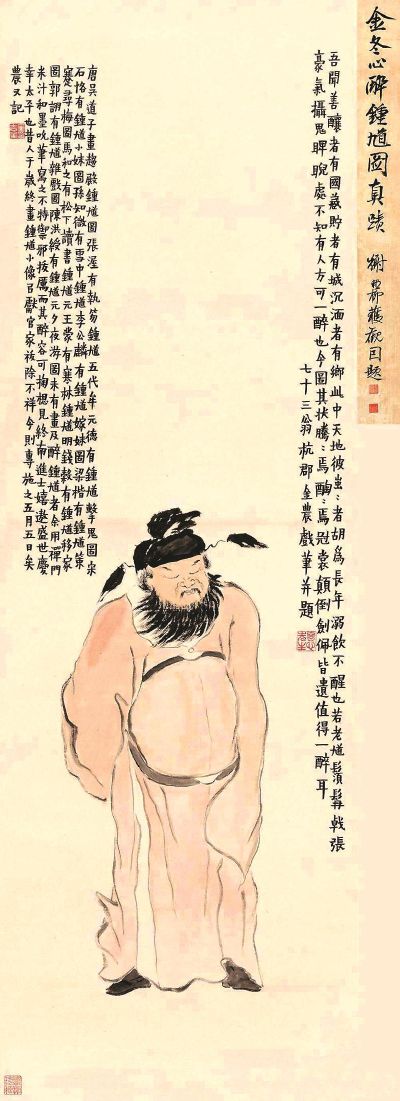 金冬心醉鍾馗圖真蹟 獲觀因題
吾聞善釀者有國蔵貯者有城沉湎者有鄉此中天地彼蚩〻者胡為長年溺飲不醒也若老馗鬚髯戟張
豪氣攝鬼睥睨處不知有人方可一醉也今圖其狀騰〻焉酶〻焉冠裳顛倒劍舄皆遺值得一醉耳
七十三翁杭郡金農戲筆并題
唐吳道子畫趨殿鍾馗圖張渥有執笏鍾馗五代牟元德有鍾馗擊鬼圖宋
石恪有鍾馗小妹圖孫知微有雪中鍾馗李公麟有鍾馗嫁妹圖梁楷有鍾馗策
蹇尋梅圖馬和之有松下讀書鍾馗元王蒙有寒林鍾馗明錢穀有鍾馗移家
圖郭詡有鍾馗雜戲圖陳洪綬有鍾馗元夕夜游圖未有畫及醉鍾馗者余用禪門
米汁和墨吮筆寫之不特禦邪拔厲而其醉容可掬想見終南進士嬉遨盛世慶
幸太平也昔人于歲終畫鍾馗小像以獻官家祓除不祥今則專施之五月五日矣
農又記